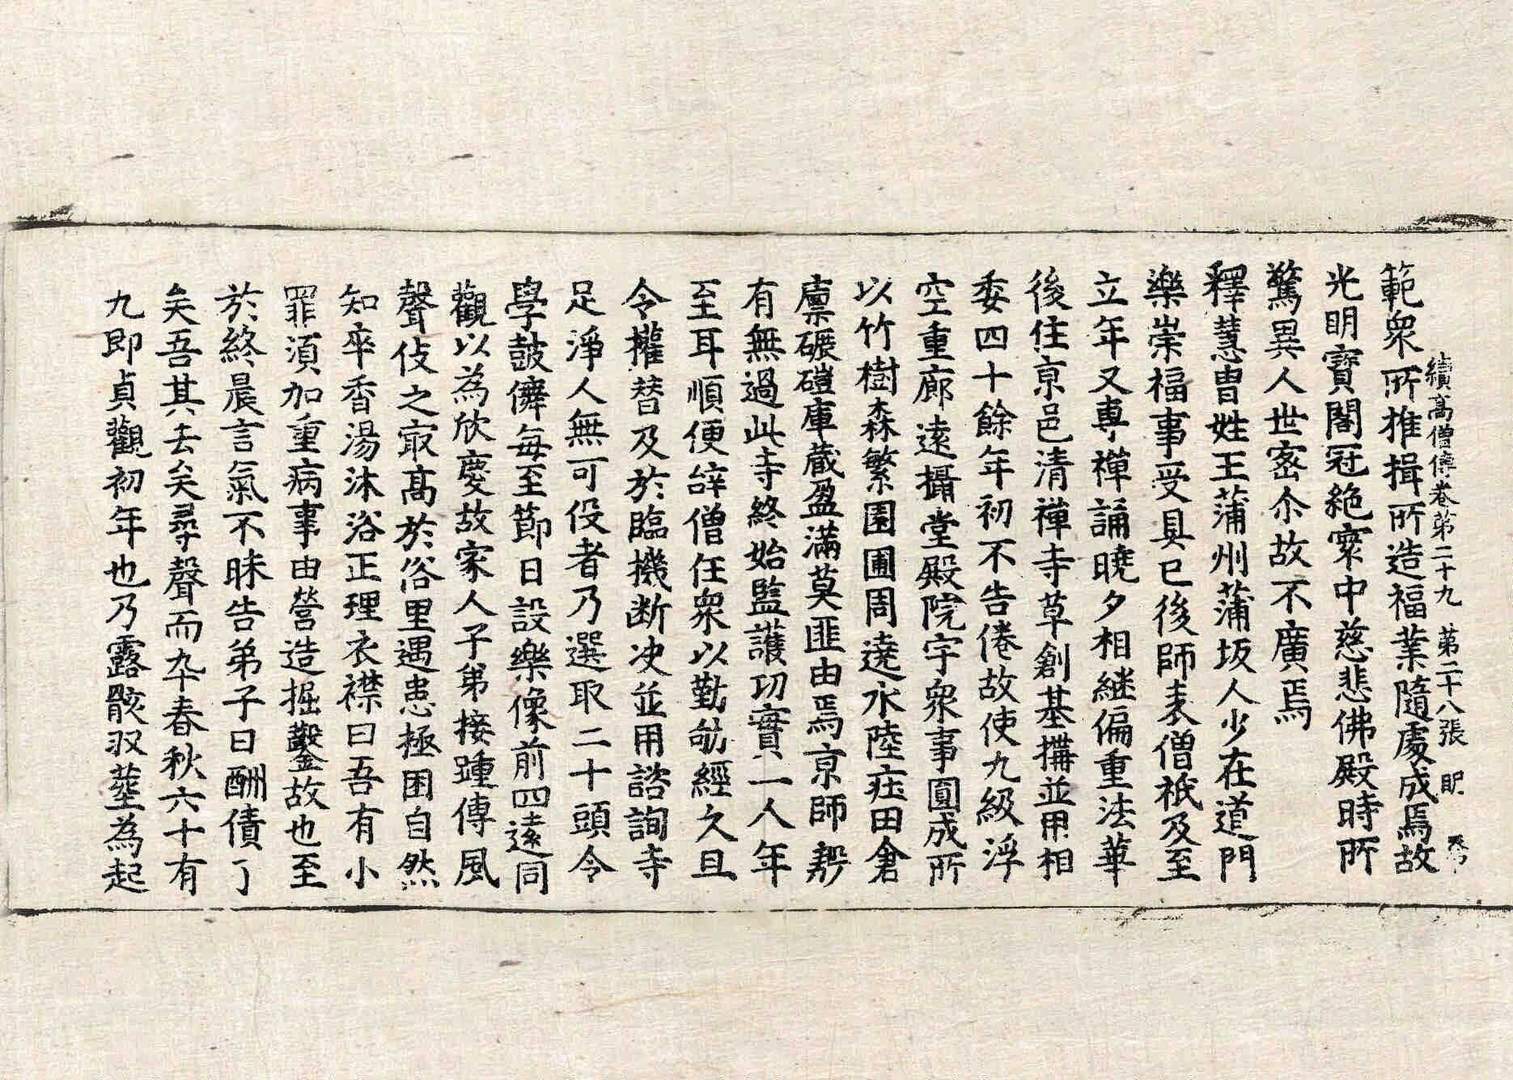 續高僧傳卷第二十九　第二十八張　明
範衆所推揖所造福業隨處成焉故
光明寶閣冠絶寰中慈悲佛殿時所
驚異人世密尒故不廣焉
釋慧胄姓王蒲州蒲坂人少在道門
樂崇福事受具已後師表僧祇及至
立年又專禪誦曉夕相継偏重法華
後住京邑清禪寺草創基搆並用相
委四十餘年初不告倦故使九級浮
空重廊遠攝堂殿院宇衆事圓成所
以竹樹森繁園圃周遶水陸庄田倉
廪碾磑庫藏盈滿莫匪由焉京師殷
有無過此寺終始監護功實一人年
至耳順便辝僧任衆以勤劬經久且
令權替及於臨機断决並用諮詢寺
足淨人無可役者乃選取二十頭令
學鼓儛每至節日設樂像前四遠同
觀以為欣慶故家人子弟接踵傳風
聲伎之㝡髙於俗里遇患極困自然
知卒香湯沐浴正理衣襟曰吾有小
罪湏加重病事由營造掘鑿故也至
於終晨言氣不昧告弟子曰酬債了
矣吾其去矣尋聲而卒春秋六十有
九即貞觀初年也乃露骸收葬為起